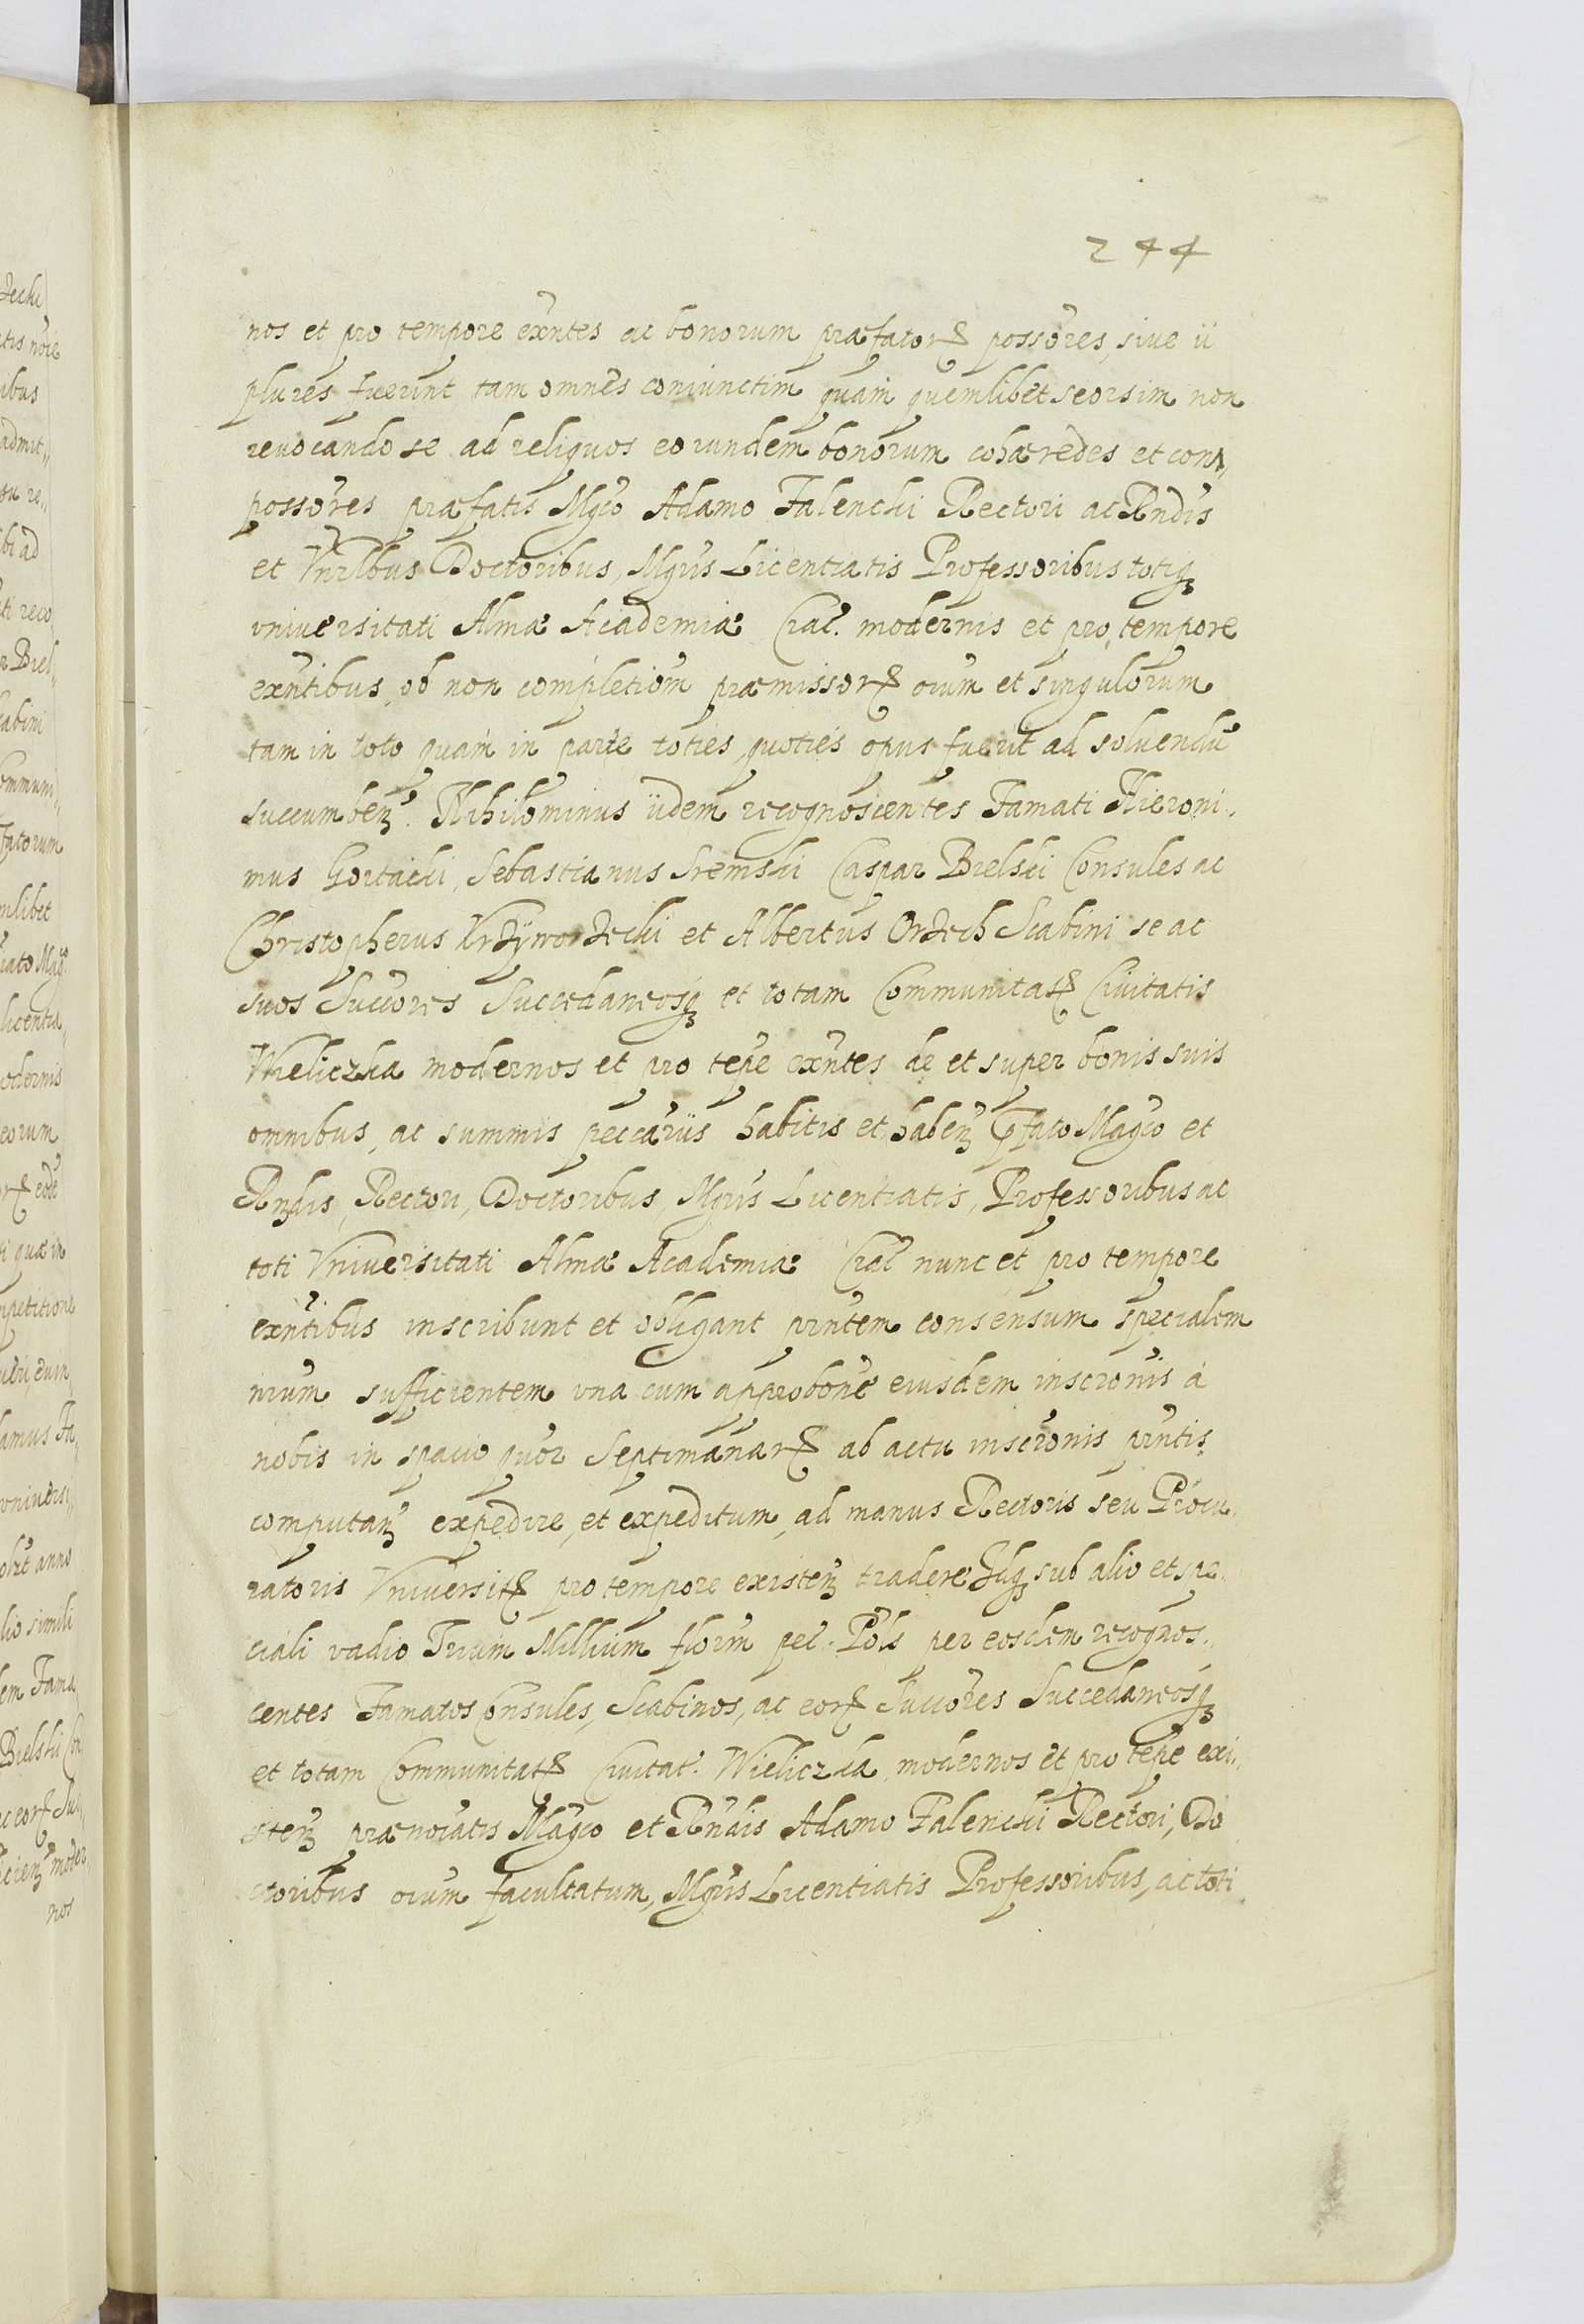 244
nos et pro tempore exntes ac bonorum præfatorꝝ possores, siue ii
plures fuerint tam omnes coniunctim quam quemlibet seorsim non
reuocando se ad reliquos eorundem bonorum cohæredes et com„
possores præfatis Mgco Adamo Falencki Rectori ac Rndis
et Vnrlbus Doctoribus, Mgris Licentiatis Professoribus totiqꝫ
vniuersitati Almæ Academiæ Crac. modernis et pro tempore
exntibus, ob non completiom præmissorꝝ oium et singulorum
tam in toto quam in parte toties, quoties opus fuerit ad soluendu
succumbenꝫ. Nihilominus iidem recognoscentes Famati Hieroni.
mus Gortacki, Sebastianus Sremski Caspar Bielski Consules ac
Christopherus Krzÿworzecki et Albertus Orzech Scabini se ac
suos Succores Succedaneosqꝫ et totam Communitatꝝ Ciuitatis
Wieliczka modernos et pro tepe exntes de et super bonis suis
omnibus, ac summis peccariis habitis et habenꝫ pfato Magco et
Rndis, Rectori, Doctoribus, Mgris Licentiatis, Professoribus ac
toti Vniuersitati Almæ Academiæ Crac nunc et pro tempore
exntibus inscribunt et obligant prntem consensum specialem
nrum sufficientem vna cum approbone eiusdem inscronis à
nobis in spacio quor Septimanarꝝ ab actu inscronis prntis
computanꝫ expedire, et expeditum, ad manus Rectoris seu Procu.
ratoris Vniuersitꝝ pro tempore existenꝫ tradere Idqꝫ sub alio et spe.
ciali vadio Trium Millium florm pec. Pols per eosdem recognos.,
centes Famatos Consules, Scabinos, ac eorꝝ Succores Succedaneosqꝫ
et totam Communitatꝝ Ciuitat. Wieliczka modernos et pro tepe exi„
stenꝫ prænotatis Magco et Rndis Adamo Falencki Rectori, Do
ctoribus oium facultatum, Mgris Licentiatis Professoribus, ac toti